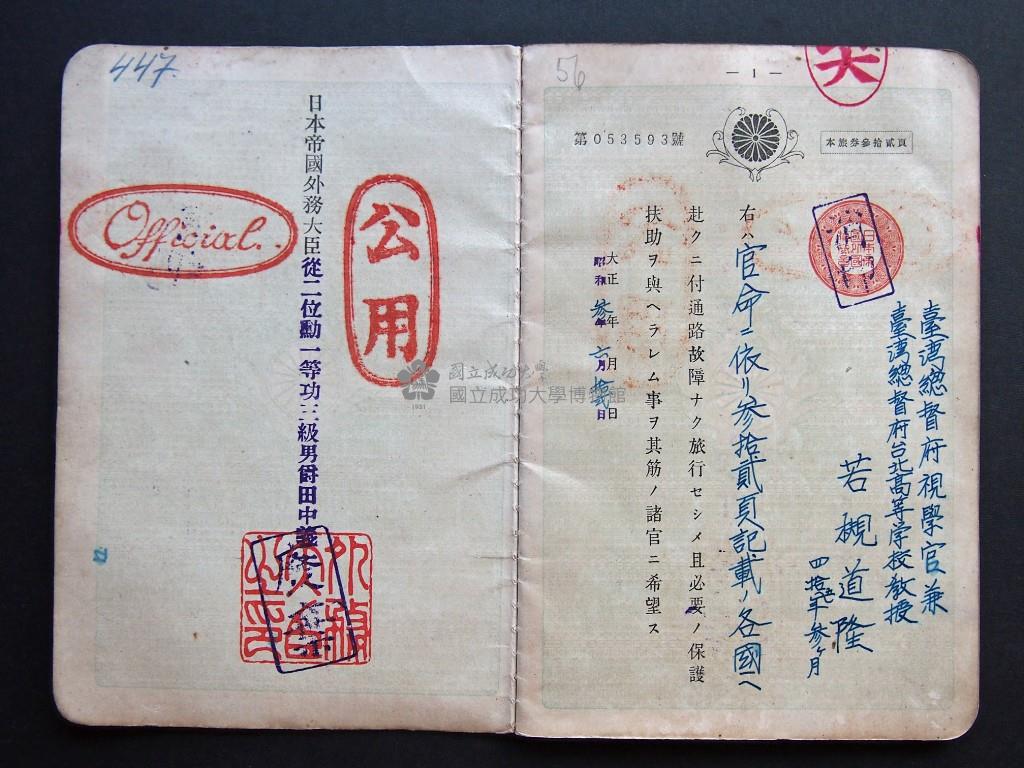 — 1 —
第053593號
本旅券參拾貳頁
56
臺湾總督府視學官兼
臺湾總督府台北高等学校教授
若槻道隆
右ハ官命ニ依リ参拾貳頁記載ノ各國ヘ
赴クニ付通路故障ナク旅行セシメ且必要ノ保護
扶助ヲ與ヘラレム事ヲ其筋ノ諸官ニ希望ス
大正 年 月 日
昭和参年六月 日
447
公用
日本帝國外務大臣從二位勳一等功三級男爵田中義一
Official.
外務大臣之印
國立成功大學
國立成功大學博物館
1931